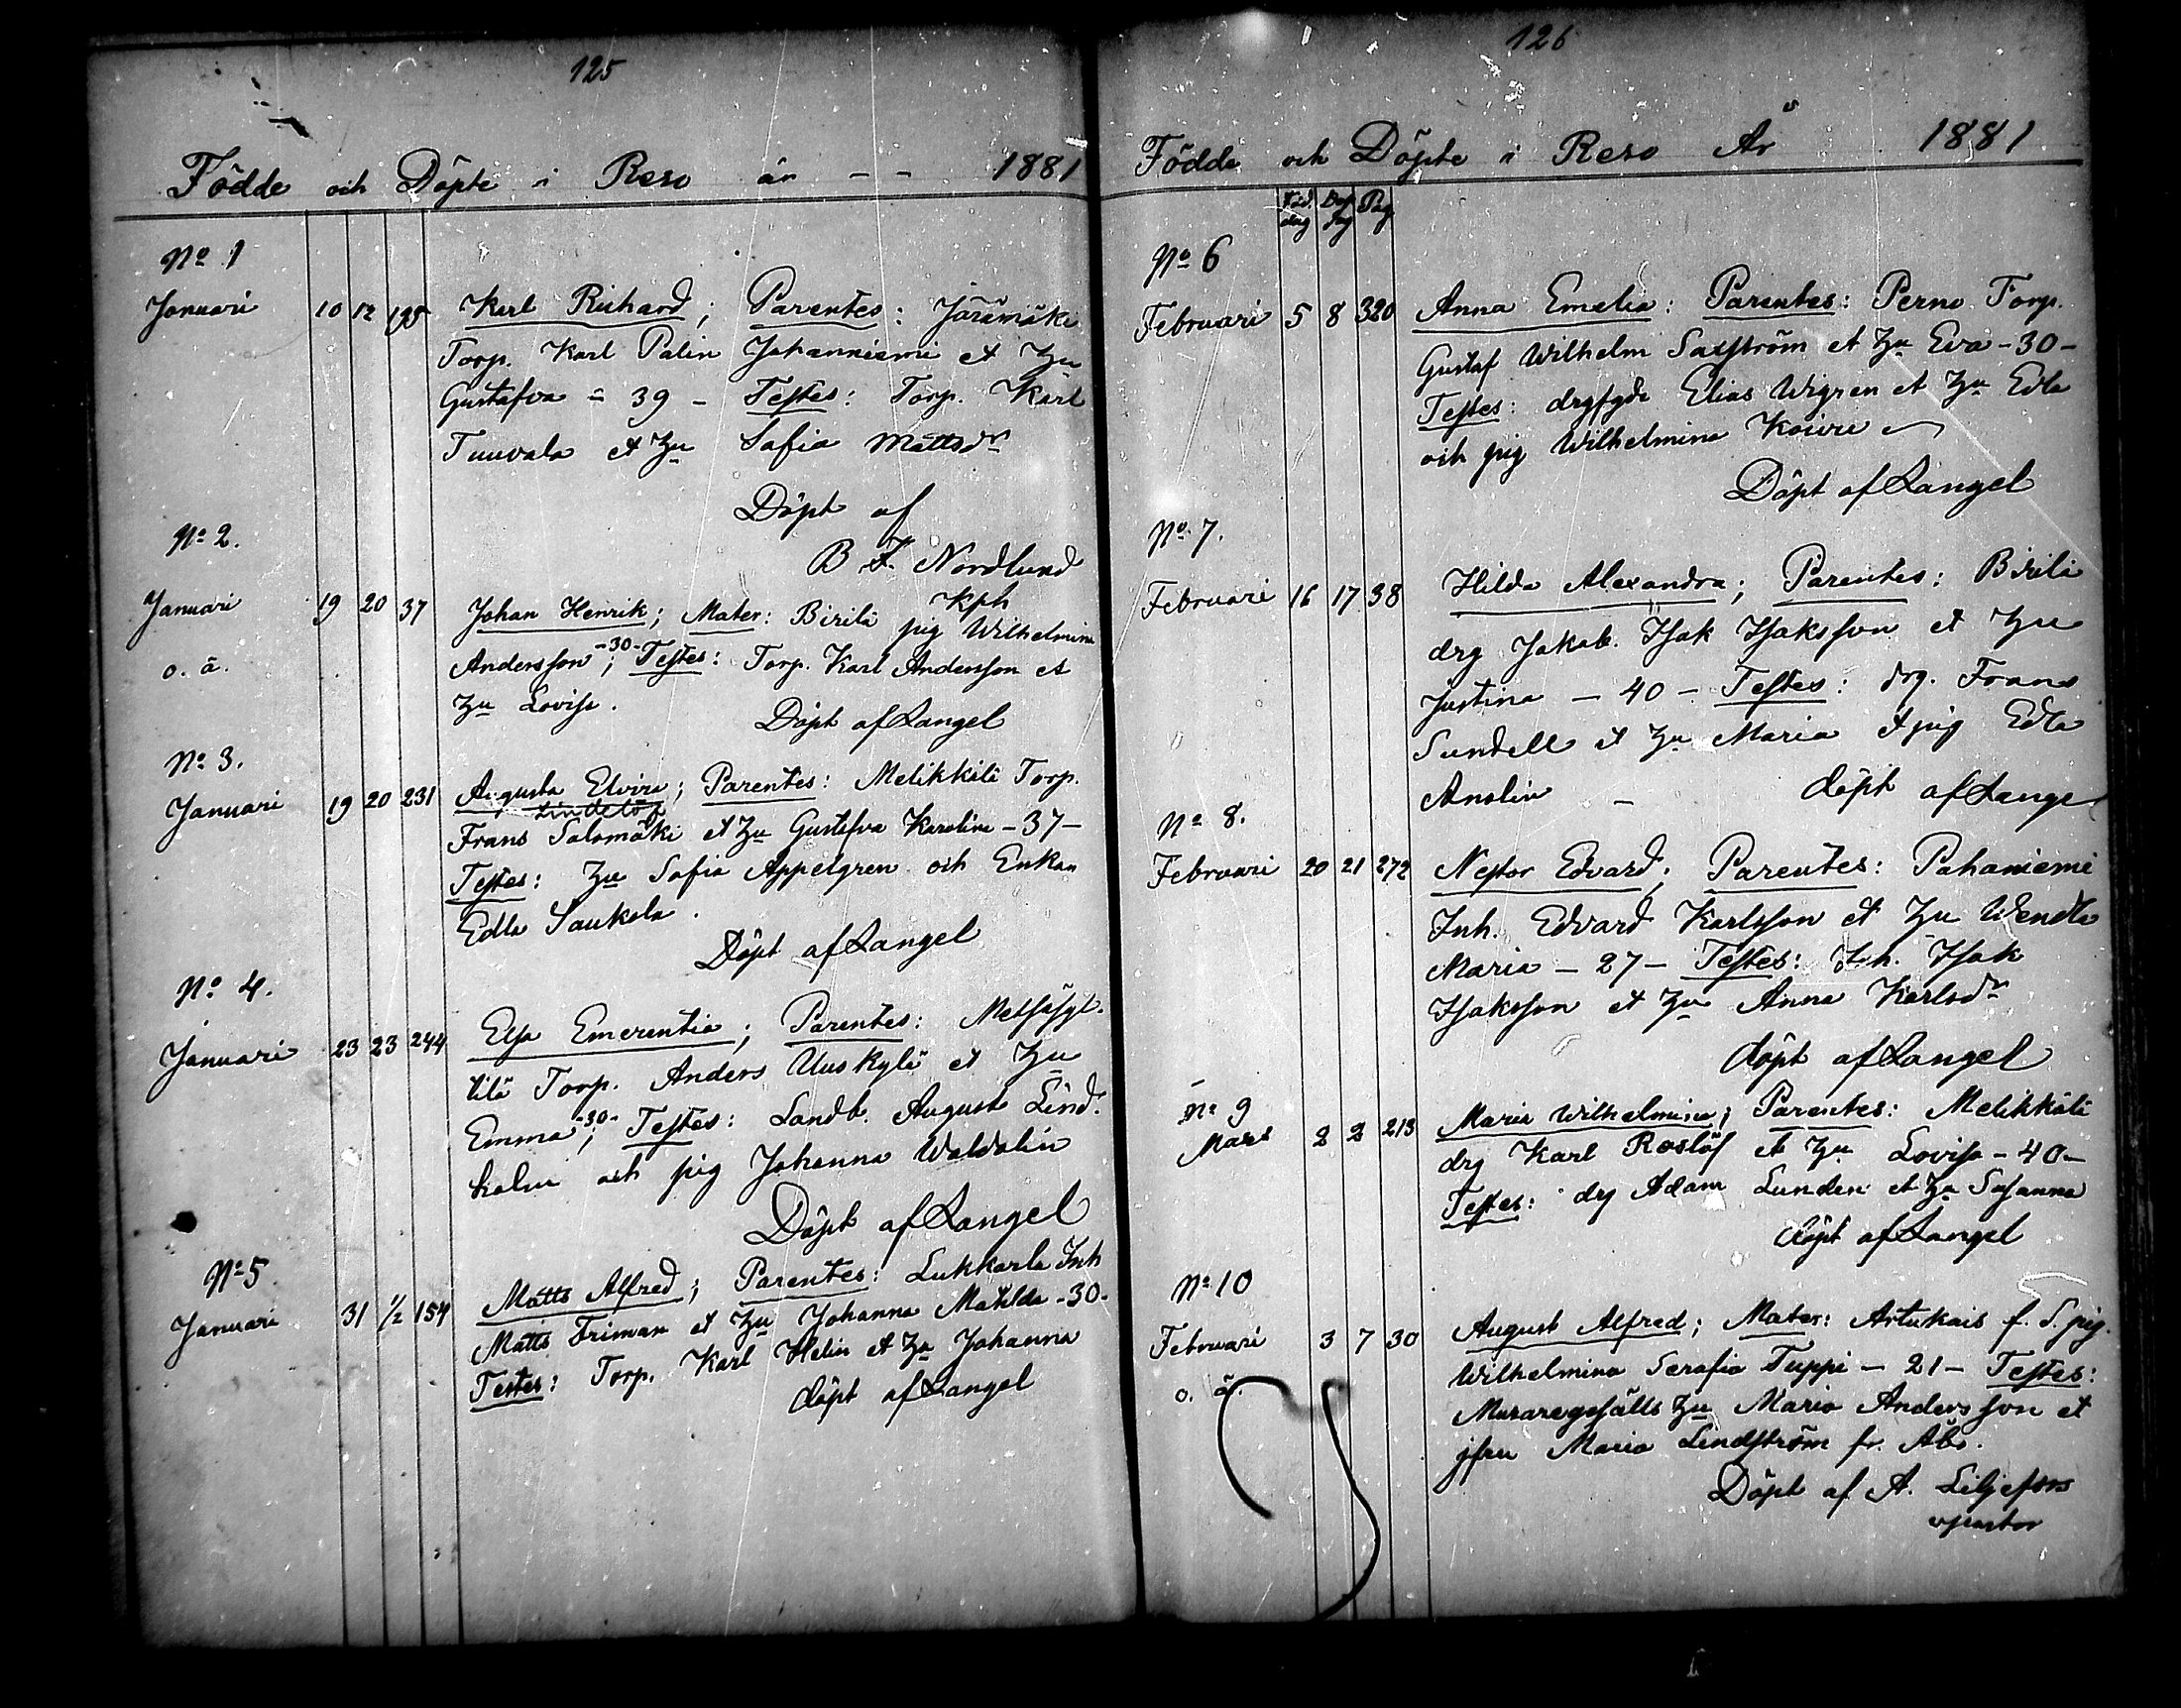 125
Födde och Döpte i Reso år - - 1881
No 1
Januari 10 12 195 Karl Richard; Parentes: Järämäki
Torp. Karl Palin Johanniemi et Hu
Gustafva - 39 - Testes: Torp. Karl
Tuuvala et Hu Sofia Mattsdr
Döpt af
B F. Nordlund
No 2.
Januari 19 20 37 Johan Henrik; Mater: Birilä Kph pig Wilhelmina
o. ä. Andersson -30-; Testes: Torp. Karl Andersson et
Hu Lovisa.
Döpt af Langel
No 3.
Januari 19 20 231 Augusta Elvira; Parentes: Melikkilä Torp.
Lindelöf
Frans Salomäki et Hu Gustafva Karolina - 37 -
Testes: Hu Sofia Appelgren och Enkan
Edla Saukola.
Döpt af Langel
No 4.
Januari 23 23 244 Elsa Emerentia; Parentes: Metsäsyl-
tilä Torp. Anders Uuskylä et Hu
Emma -30-; Testes: Landb. August Lind-
holm och pig Johanna Waldolin
Döpt af Langel
No 5
Januari 31 1/2 154 Matts Alfred; Parentes: Lukkarla Inh
Matts Friman et Hu Johanna Matilda - 30 -
Testes: Torp. Karl Helin et Hu Johanna
döpt af Langel
126
Födde och Döpte i Reso År 1881
Föd. dag Döp dag Pag
No 6
Februari 5 8 320 Anna Emelia: Parentes: Perno Torp.
Gustaf Wilhelm Saxström et Hu Eva - 30 -
Testes: drgfgde Elias Wigren et Hu Edla
och pig Wilhelmina Koivu
Döpt af Langel
No 7.
Februari 16 17 38 Hilda Alexandra; Parentes: Birilä
drg Jakob. Isak Isaksson et Hu
Justina - 40 - Testes: drg. Frans
Sundell et Hu Maria et pig Edla
Anolin - döpt af Lange
No 8.
Februari 20 21 272 Nestor Edvard; Parentes: Pahaniemi
Inh. Edvard Karlsson et Hu Wendla
Maria - 27 - Testes: Inh. Isak
Isaksson et Hu Anna Karlsdr
döpt af Langel
No 9
Mars 2 2 213 Maria Wilhelmina; Parentes: Melikkälä
drg Karl Roslöf et Hu Lovisa - 40 -
Testes: drg Adam Lunden et Hu Susanna
döpt af Langel
No 10
Februari 3 7 30 August Alfred; Mater: Artukais f. d. pig.
o. ä. Wilhelmina Serafia Tuppi - 21 - Testes:
Muraregesälls Hu Maria Andersson et
jfru Maria Lindström fr. Åbo.
Döpt af A. Liljefors
vpastor